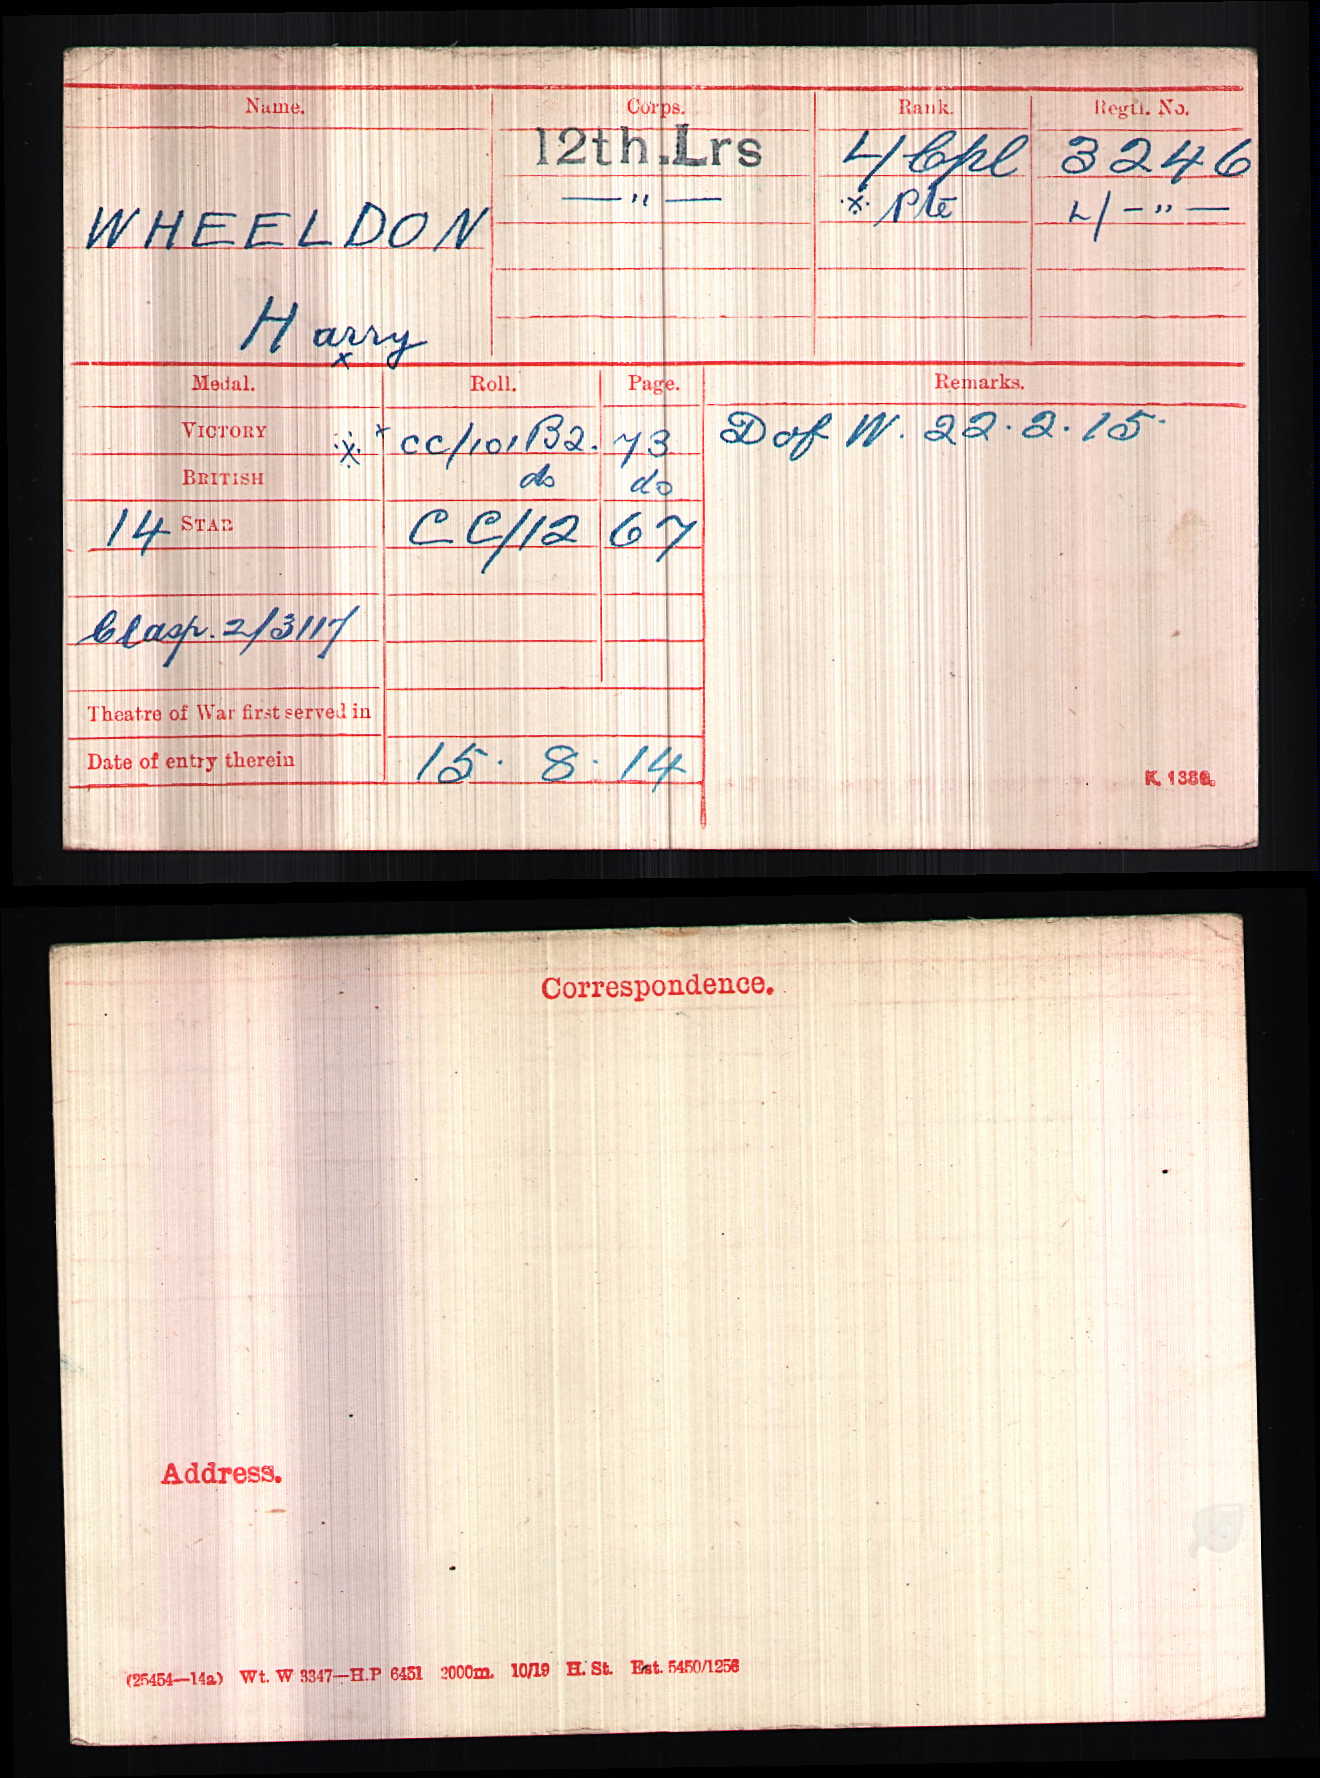 Name. Corps. Rank. Regtl. No.
12th.Lrs L/Cpl 3246
— " — ※ Pte L/ — " —
WHEELDON
Harry
x
Medal. Roll. Page. Remarks.
VICTORY ※ x CC/101B2. 73 D of W. 22.2.15.
BRITISH do do
14 STAR CC/12 67
Clasp. 2/3117
Theatre of War first served in
Date of entry therein 15. 8. 14
K. 1380.
Correspondence.
Address.
(25454—14a) Wt. W 3347—H.P 6451 2000m. 10/19 H. St. Est. 5450/1256